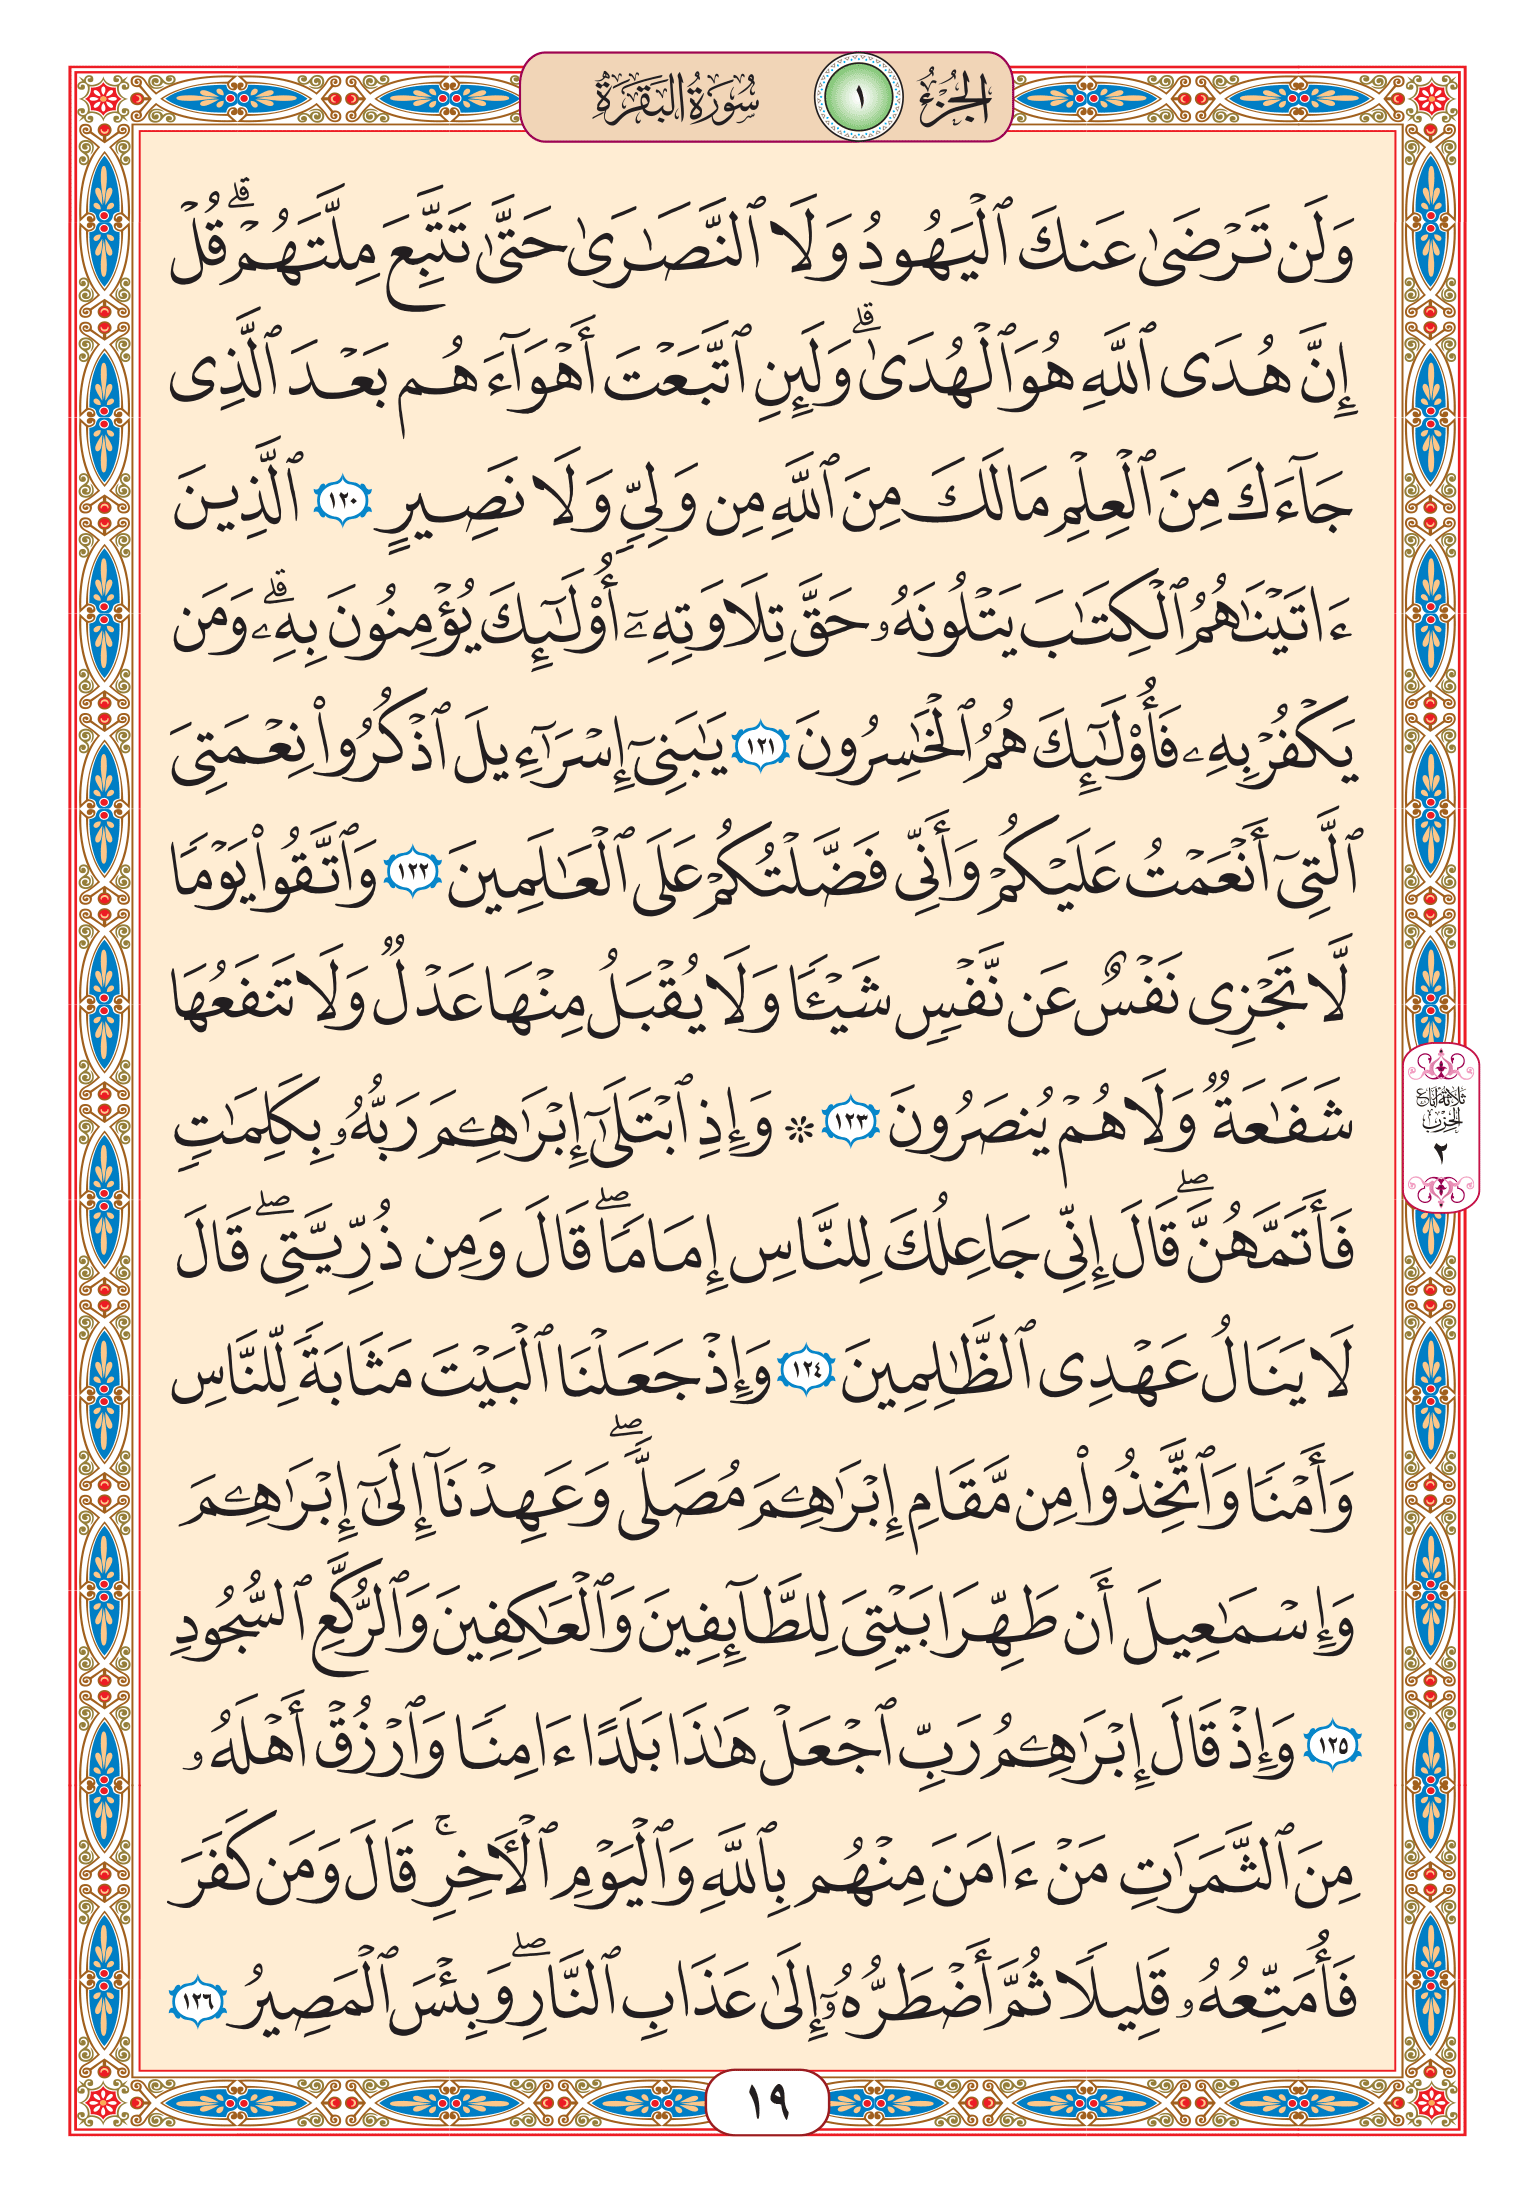 الجزء ١ سورة البقرة
وَلَن تَرْضَىٰ عَنكَ ٱلْيَهُودُ وَلَا ٱلنَّصَـٰرَىٰ حَتَّىٰ تَتَّبِعَ مِلَّتَهُمْ ۗ قُلْ
إِنَّ هُدَى ٱللَّهِ هُوَ ٱلْهُدَىٰ ۗ وَلَئِنِ ٱتَّبَعْتَ أَهْوَآءَهُم بَعْدَ ٱلَّذِى
جَآءَكَ مِنَ ٱلْعِلْمِ مَا لَكَ مِنَ ٱللَّهِ مِن وَلِىٍّ وَلَا نَصِيرٍ ١٢٠ ٱلَّذِينَ
ءَاتَيْنَـٰهُمُ ٱلْكِتَـٰبَ يَتْلُونَهُۥ حَقَّ تِلَاوَتِهِۦٓ أُو۟لَـٰٓئِكَ يُؤْمِنُونَ بِهِۦ ۗ وَمَن
يَكْفُرْ بِهِۦ فَأُو۟لَـٰٓئِكَ هُمُ ٱلْخَـٰسِرُونَ ١٢١ يَـٰبَنِىٓ إِسْرَٰٓءِيلَ ٱذْكُرُوا۟ نِعْمَتِىَ
ٱلَّتِىٓ أَنْعَمْتُ عَلَيْكُمْ وَأَنِّى فَضَّلْتُكُمْ عَلَى ٱلْعَـٰلَمِينَ ١٢٢ وَٱتَّقُوا۟ يَوْمًا
لَّا تَجْزِى نَفْسٌ عَن نَّفْسٍ شَيْـًٔا وَلَا يُقْبَلُ مِنْهَا عَدْلٌ وَلَا تَنفَعُهَا
شَفَـٰعَةٌ وَلَا هُمْ يُنصَرُونَ ١٢٣ ۞ وَإِذِ ٱبْتَلَىٰٓ إِبْرَٰهِـۧمَ رَبُّهُۥ بِكَلِمَـٰتٍ
فَأَتَمَّهُنَّ ۖ قَالَ إِنِّى جَاعِلُكَ لِلنَّاسِ إِمَامًا ۖ قَالَ وَمِن ذُرِّيَّتِى ۖ قَالَ
لَا يَنَالُ عَهْدِى ٱلظَّـٰلِمِينَ ١٢٤ وَإِذْ جَعَلْنَا ٱلْبَيْتَ مَثَابَةً لِّلنَّاسِ
وَأَمْنًا وَٱتَّخِذُوا۟ مِن مَّقَامِ إِبْرَٰهِـۧمَ مُصَلًّى ۖ وَعَهِدْنَآ إِلَىٰٓ إِبْرَٰهِـۧمَ
وَإِسْمَـٰعِيلَ أَن طَهِّرَا بَيْتِىَ لِلطَّآئِفِينَ وَٱلْعَـٰكِفِينَ وَٱلرُّكَّعِ ٱلسُّجُودِ
١٢٥ وَإِذْ قَالَ إِبْرَٰهِـۧمُ رَبِّ ٱجْعَلْ هَـٰذَا بَلَدًا ءَامِنًا وَٱرْزُقْ أَهْلَهُۥ
مِنَ ٱلثَّمَرَٰتِ مَنْ ءَامَنَ مِنْهُم بِٱللَّهِ وَٱلْيَوْمِ ٱلْـَٔاخِرِ ۚ قَالَ وَمَن كَفَرَ
فَأُمَتِّعُهُۥ قَلِيلًا ثُمَّ أَضْطَرُّهُۥٓ إِلَىٰ عَذَابِ ٱلنَّارِ ۖ وَبِئْسَ ٱلْمَصِيرُ ١٢٦
ثلاثة أرباع
الحزب
٢
١٩